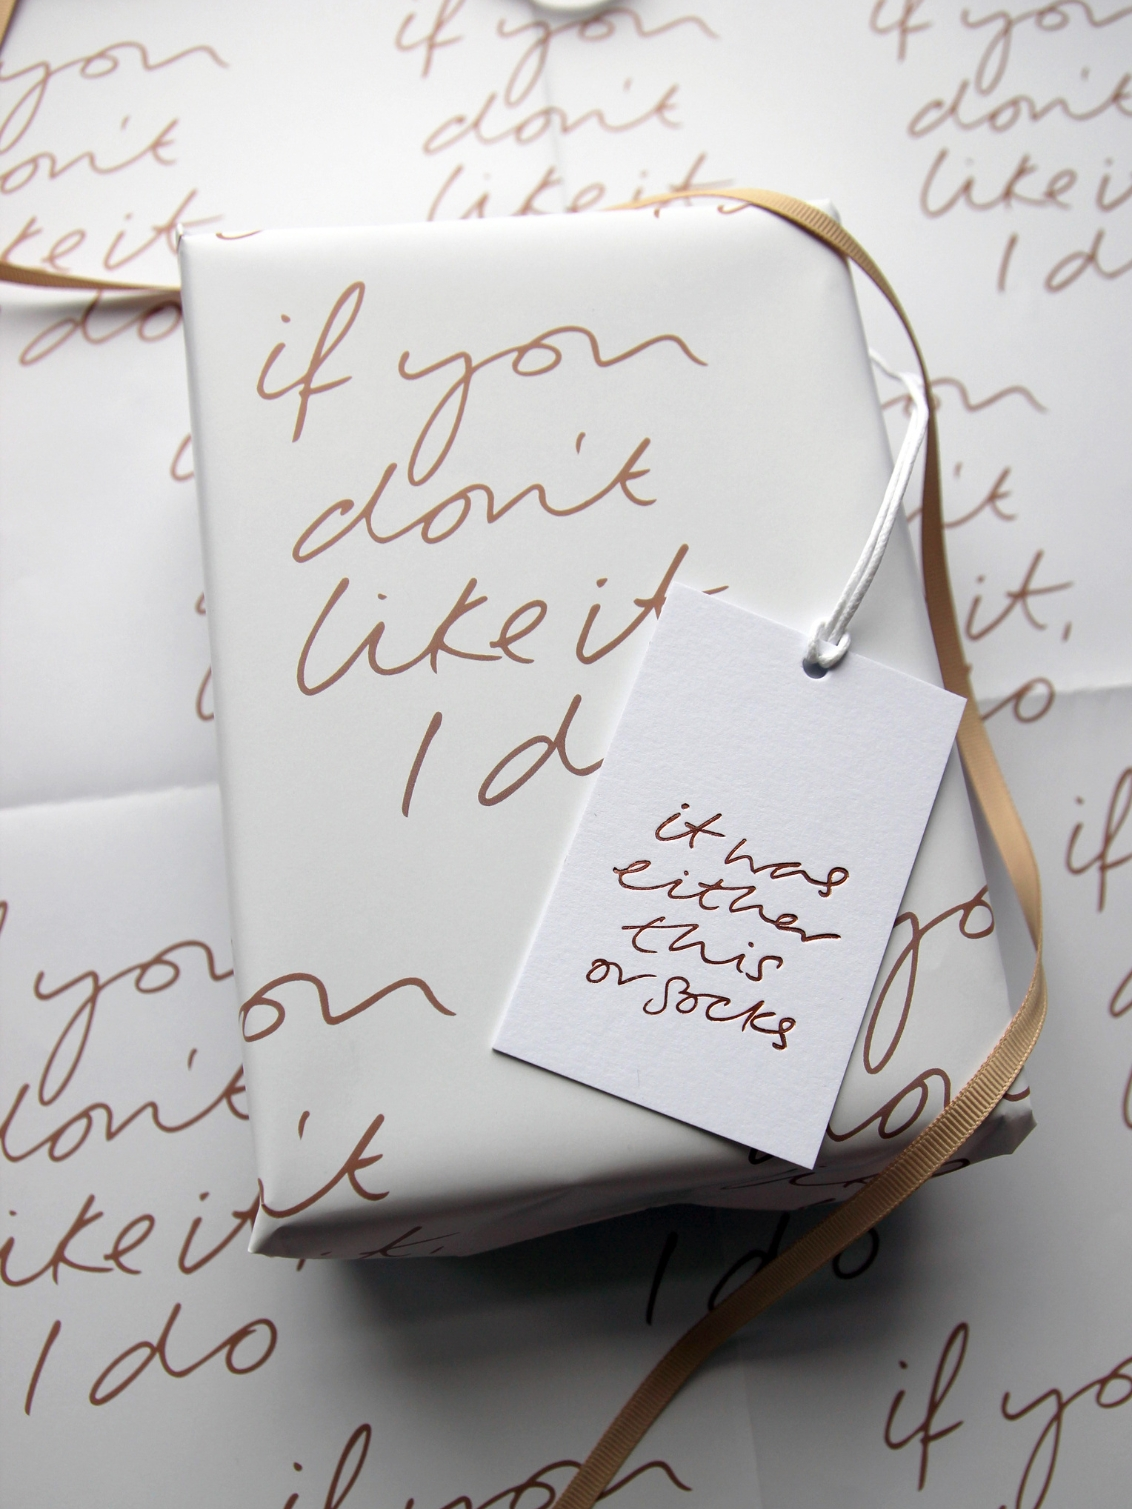 if you
don't
like it
I do
if you
don't
like it
I d
you
don't
like it
do
if you
don't
like it
I d
it was
either
this
or socks
it,
you
don't
like it
I do
you
don't
I do
if you
if you